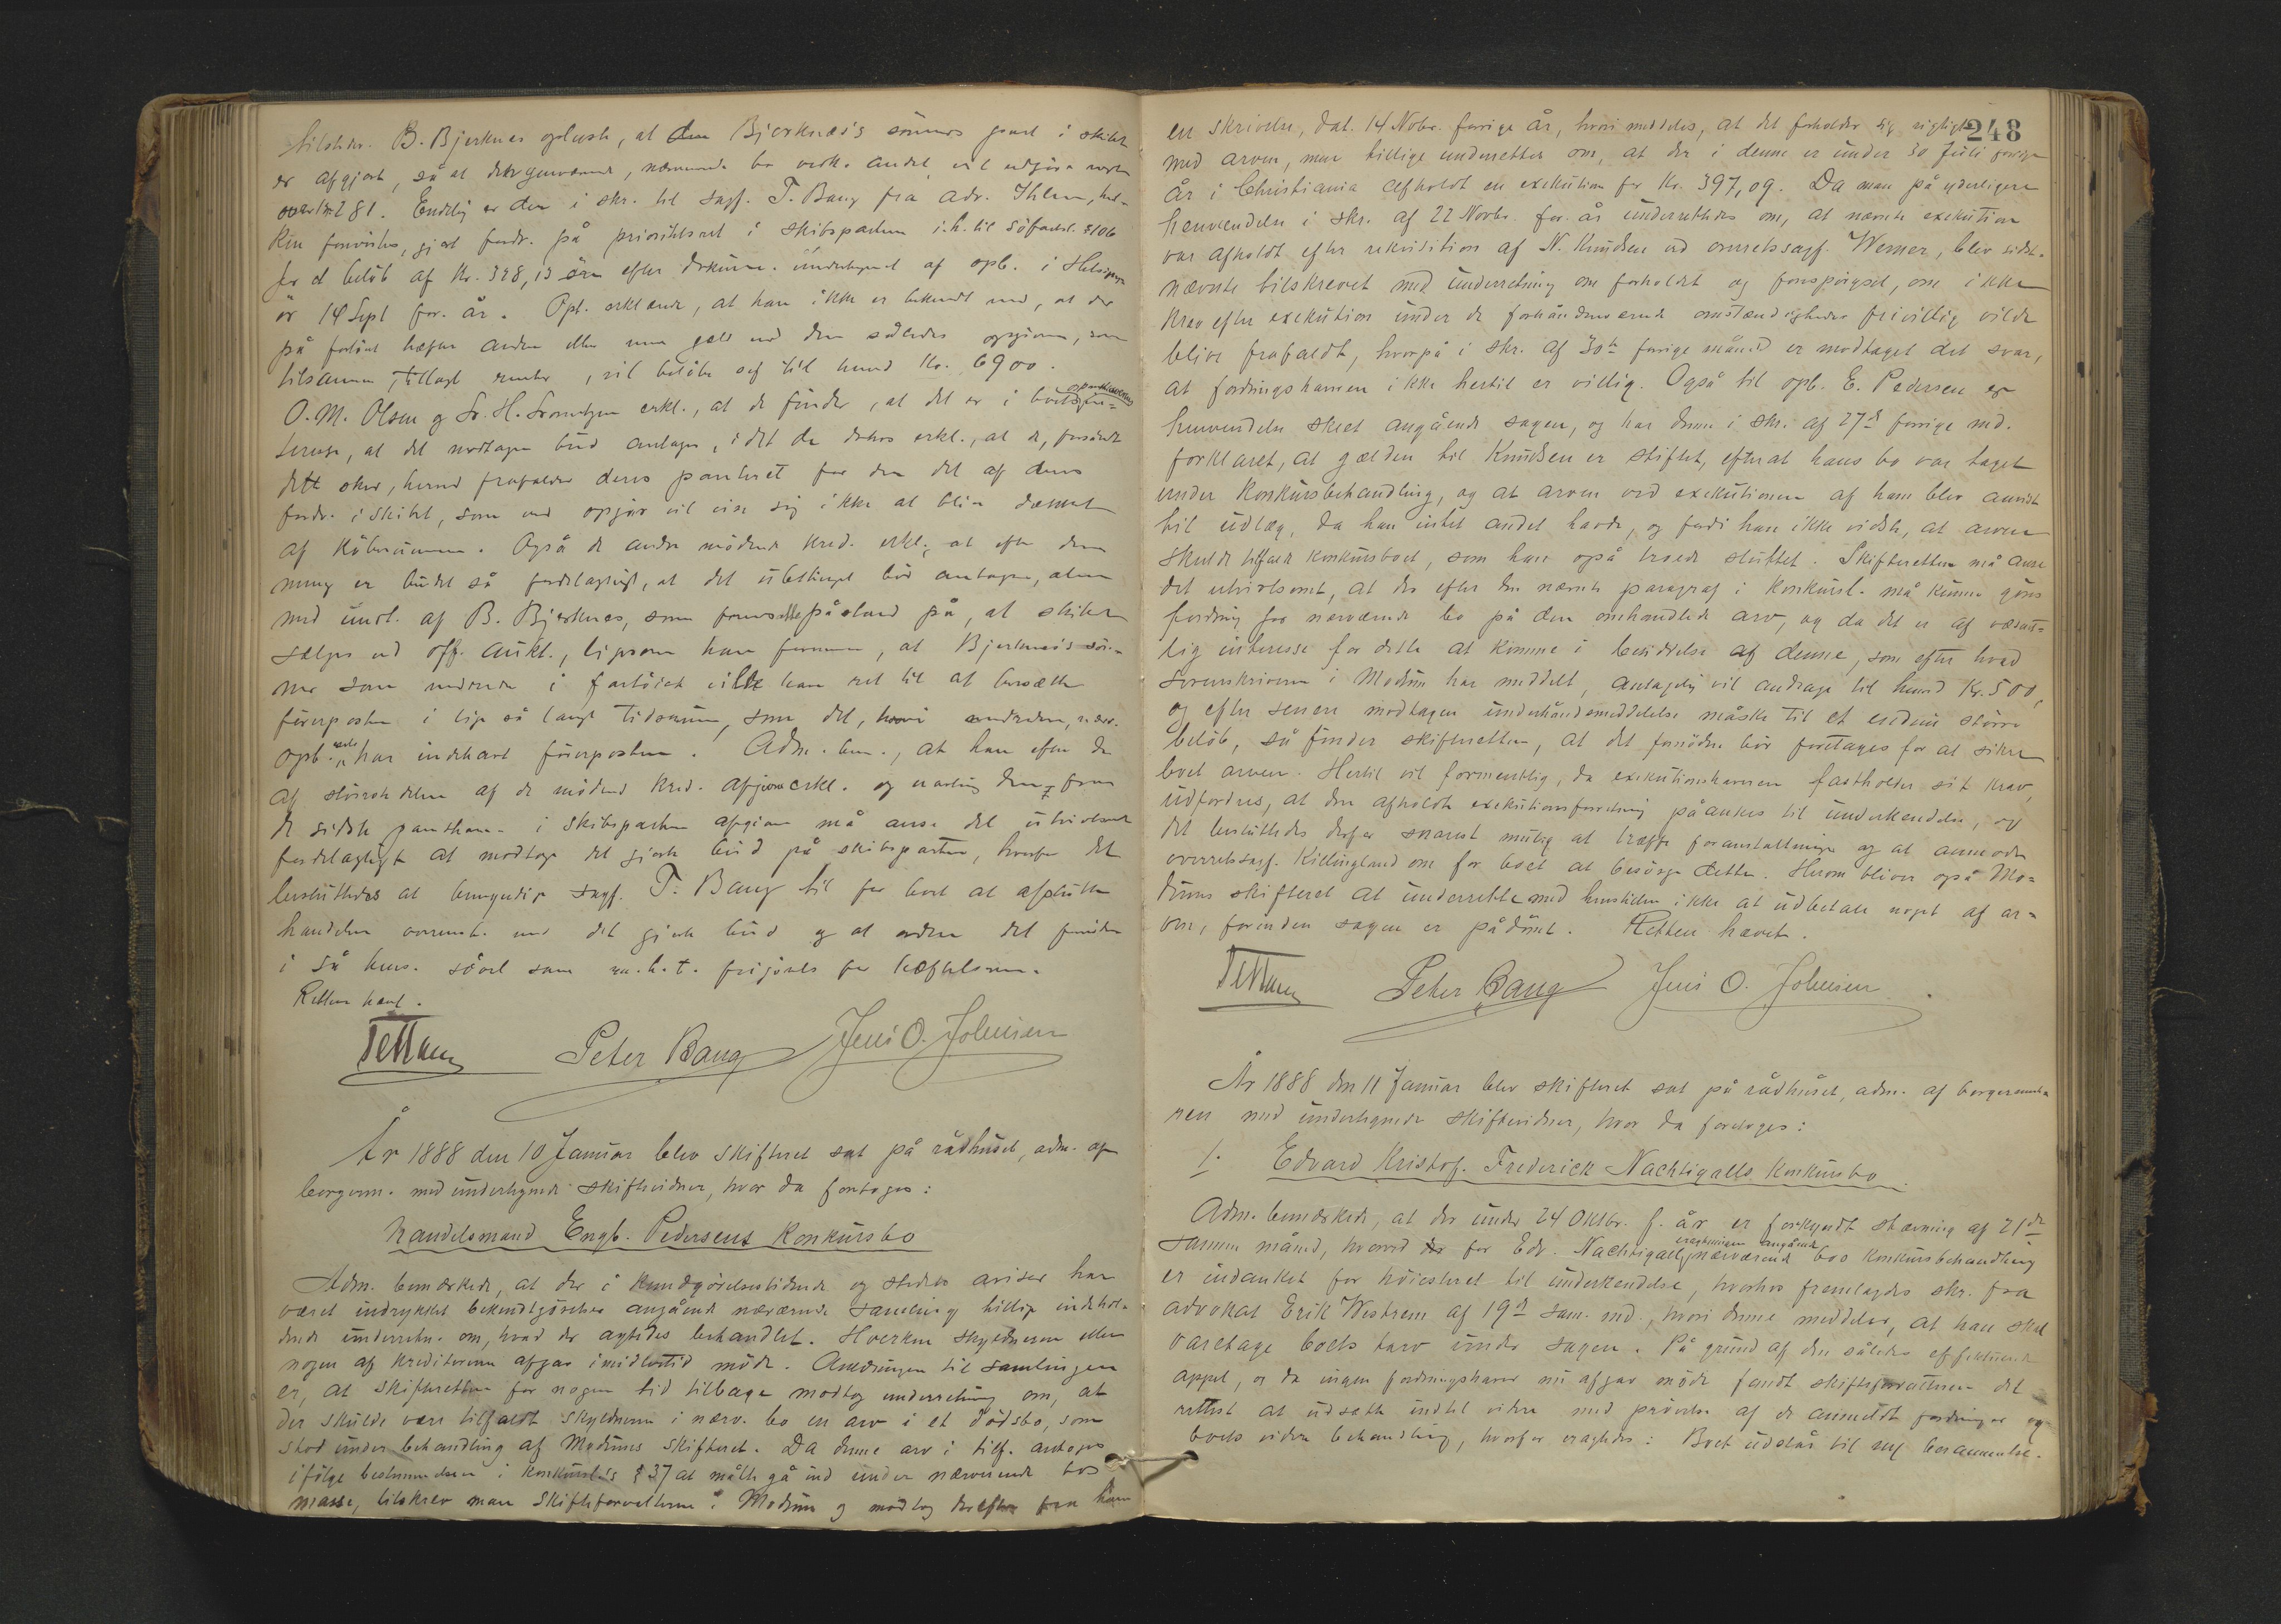 tilstede. B. Bjerknes oplyste, at den Bjerknes's sönners part i skibet
er afgjort, så at det nærværende bo vedk. andel, vil udgjøre
281. Endelig er der i skr. til sagf. T. Bang fra adv. Ihlen, hvil-
ken foreviistes, gjort fordr. på prioritetsret i skibsparten i.h. til söfartsl. § 106
for et belöb af Kr. 328,13 öre efter dokum. undertegnet af opb. i Helsingör
14 Sept for. år. Opb. erklærede, at han ikke er bekendt med, at der
på fartöiet hæfter anden eller mere gæld end den således opgivne, som
tilsammen, tillagt renter, vil belöbe sig til henved Kr. 6900.
O. M. Olsen og Sr. H. erkl., at de finder, at det er i boets in-
teresse, at det modtagne bud antages, idet de derhos erkl., at de, forsåvidt
dette sker, herved frafalder deres panteret for den del af deres
fordr. i skibet, som ved opgjör vil vise sig ikke at blive dækket
af købesummen. Også de andre mödende kred. erkl. at efter deres
mening er budet så fordelagtigt, at det ubetinget bör antages, alene
med undt. af B. Bjerknes, som fremsatte påstand på, at skibet
sælges ved off. aukt., ligesom han formener, at Bjerknes's sön-
ner som medredere i fartöiet vilde have ret til at besætte
förerposten i lige så langt tidsrum, som det, hvori medrederen, nærv.
opb. har indehavt förerposten. Adm. bem., at han efter den
af störstedelen af de mödende kred. afgivne erkl. og navnlig den fra
de sidste panthav. i skibsparten afgivne må anse det utvivlsomt
fordelagtigt at modtage det gjorte bud på skibsparten, hvorfor det
besluttedes at bemyndige sagf. T. Bang til for boet at afslutte
handelen overenst. med det gjorte bud og at ordne det fornödne
i så hens. såvel som m.h.t. frigjörelse for hæftelserne.
Retten hævt.
Peter Bang Jens O. Johnsen
År 1888 den 10 Januar blev skifteret sat på rådhuset, adm. af
borgerm. med undertegnede skiftevidner, hvor da foretoges:
Handelsmand Engb. Pedersens Konkursbo
Adm. bemærkede, at der i Kundgörelsestidende og stedets aviser har
været indrykket bekendtgörelse angående nærværende samling tillige indehol-
dende underretn. om, hvad der agtedes behandlet. Hverken skyldneren eller
nogen af kreditorerne afgav imidlertid möde. Anledningen til samlingen
er, at skifteretten for nogen tid tilbage modtog underretning om, at
der skulde være tilfaldt skyldneren i nærv. bo en arv i et dödsbo, som
stod under behandling af Modums skifteret. Da denne arv i tilf. antoges
ifölge bestemmelsen i konkursl's § 37 at måtte gå ind under nærværende bos
masse, tilskrev man skifteforvalteren i Modum og modtog derefter fra ham
248
en skrivelse, dat. 14 Novbr. forrige år, hvori meddeles, at det forholder sig rigtigt
med arven, men tillige underrettes om, at der i denne er under 30 Juli forrige
år i Christiania afholdt en exekution for Kr. 397,09. Da man på yderligere
henvendelse i skr. af 22 Novbr. for. år underrettedes om, at nævnte exekution
var afholdt efter rekvisition af N. Knudsen ved overretssagf. Werner, blev sidst-
nævnte tilskrevet med underretning om forholdet og forespörgsel, om ikke
krav efter exekution under de forhåndenværende omstændigheder frivillig vilde
blive frafaldt, hvorpå i skr. af 30te forrige måned er modtaget det svar,
at fordringshaveren ikke hertil er villig. Også til opb. E. Pedersen er
henvendelse skeet angående sagen, og har denne i skr. af 27de forrige md.
forklaret, at gælden til Knudsen er stiftet, efterat hans bo var taget
under konkursbehandling, og at arven ved exekutionen af ham blev anvist
til udlæg, da han intet andet havde, og fordi han ikke vidste, at arven
skulde tilfalde konkursboet, som han også troede sluttet. Skifteretten må anse
det utvivlsomt, at der efter den nævnte paragraf i konkursl. må kunne göres
fordring for nærværende bo på den omhandlede arv, og da det er af væsent-
lig interesse for dette at komme i besiddelse af denne, som efter hvad
sorenskriveren i Modum har meddelt, antagelig vil andrage til henved Kr. 500,
og efter senere modtagen underhåndsmeddelelse måske til et endnu större
belöb, så finder skifteretten, at det fornödne bör foretages for at sikre
boet arven. Hertil vil formentlig, da exekutionshaveren fastholder sit krav,
udfordres, at den afholdte exekutionsforretning påankes til underkendelse, og
det besluttedes derfor snarest mulig at træffe foranstaltninger og at anmode
overretssagf. Killingland om for boet at besörge dette. Herom bliver også Mo-
dums skifteret at underrette med henstillen ikke at udbetale noget af ar-
ven, forinden sagen er pådömt. Retten hævet.
Peter Bang Jens O. Johnsen
År 1888 den 11 Januar blev skifteret sat på rådhuset, adm. af borgermeste-
ren med undertegnede skiftevidner, hvor da foretoges:
1. Edvard Kristof. Frederick Nachtigalls Konkursbo
Adm. bemærkede, at der under 24 Oktbr. f. år er forkyndt stævning af 21de
samme måned, hvorved der for Edv. Nachtigall eragtningen angående nærværende bos konkursbehandling
er indanket for höiesteret til underkendelse, hvorhos fremlagdes skr. fra
advokat Erik Westrem af 19de sam. md., hvori denne meddeler, at han skal
varetage boets tarv under sagen. På grund af den således effektuerede
appel, og da ingen fordringshaver nu afgav möde fandt skifteforvalteren det
rettest at udsætte indtil videre med prövelse af de anmeldte fordringer og
boets videre behandling, hvorfor eragtedes: Boet udstår til ny berammelse.